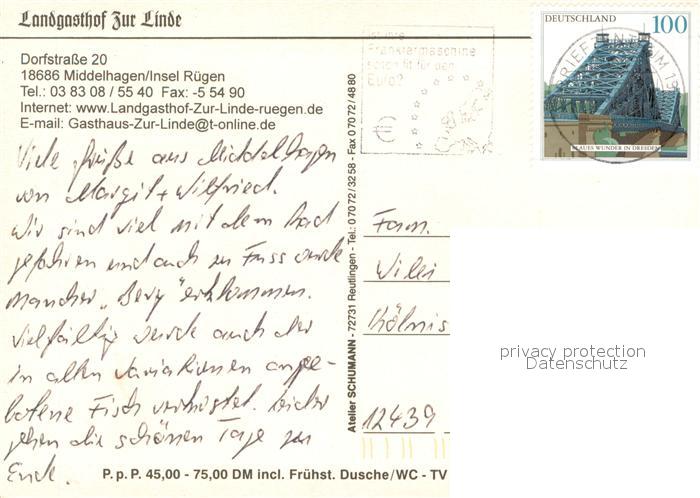 Landgasthof Zur Linde
Dorfstraße 20
18686 Middelhagen/Insel Rügen
Tel.: 03 83 08 / 55 40 Fax: -5 54 90
Internet: www.Landgasthof-Zur-Linde-ruegen.de
E-mail: Gasthaus-Zur-Linde@t-online.de
Viele Grüße aus Middelhagen
von Margit + Wilfried.
Wir sind viel mit dem Rad
gefahren und auch zu Fuss wurde
mancher "Berg" erklommen.
Vielfältig wurde auch der
in allen Variationen ange-
botene Fisch verkostet. Leider
gehen die schönen Tage zu
Ende.
P.p.P. 45,00 - 75,00 DM incl. Frühst. Dusche/WC - TV
Atelier SCHUMANN - 72731 Reutlingen - Tel.: 07072/3258 - Fax 07072/4880
Ist Ihre
Frankiermaschine
schon fit für den
Euro?
DEUTSCHLAND 100
BLAUES WUNDER IN DRESDEN
BRIEFZENTRUM 19
Fam.
Kölnis
12439
privacy protection
Datenschutz